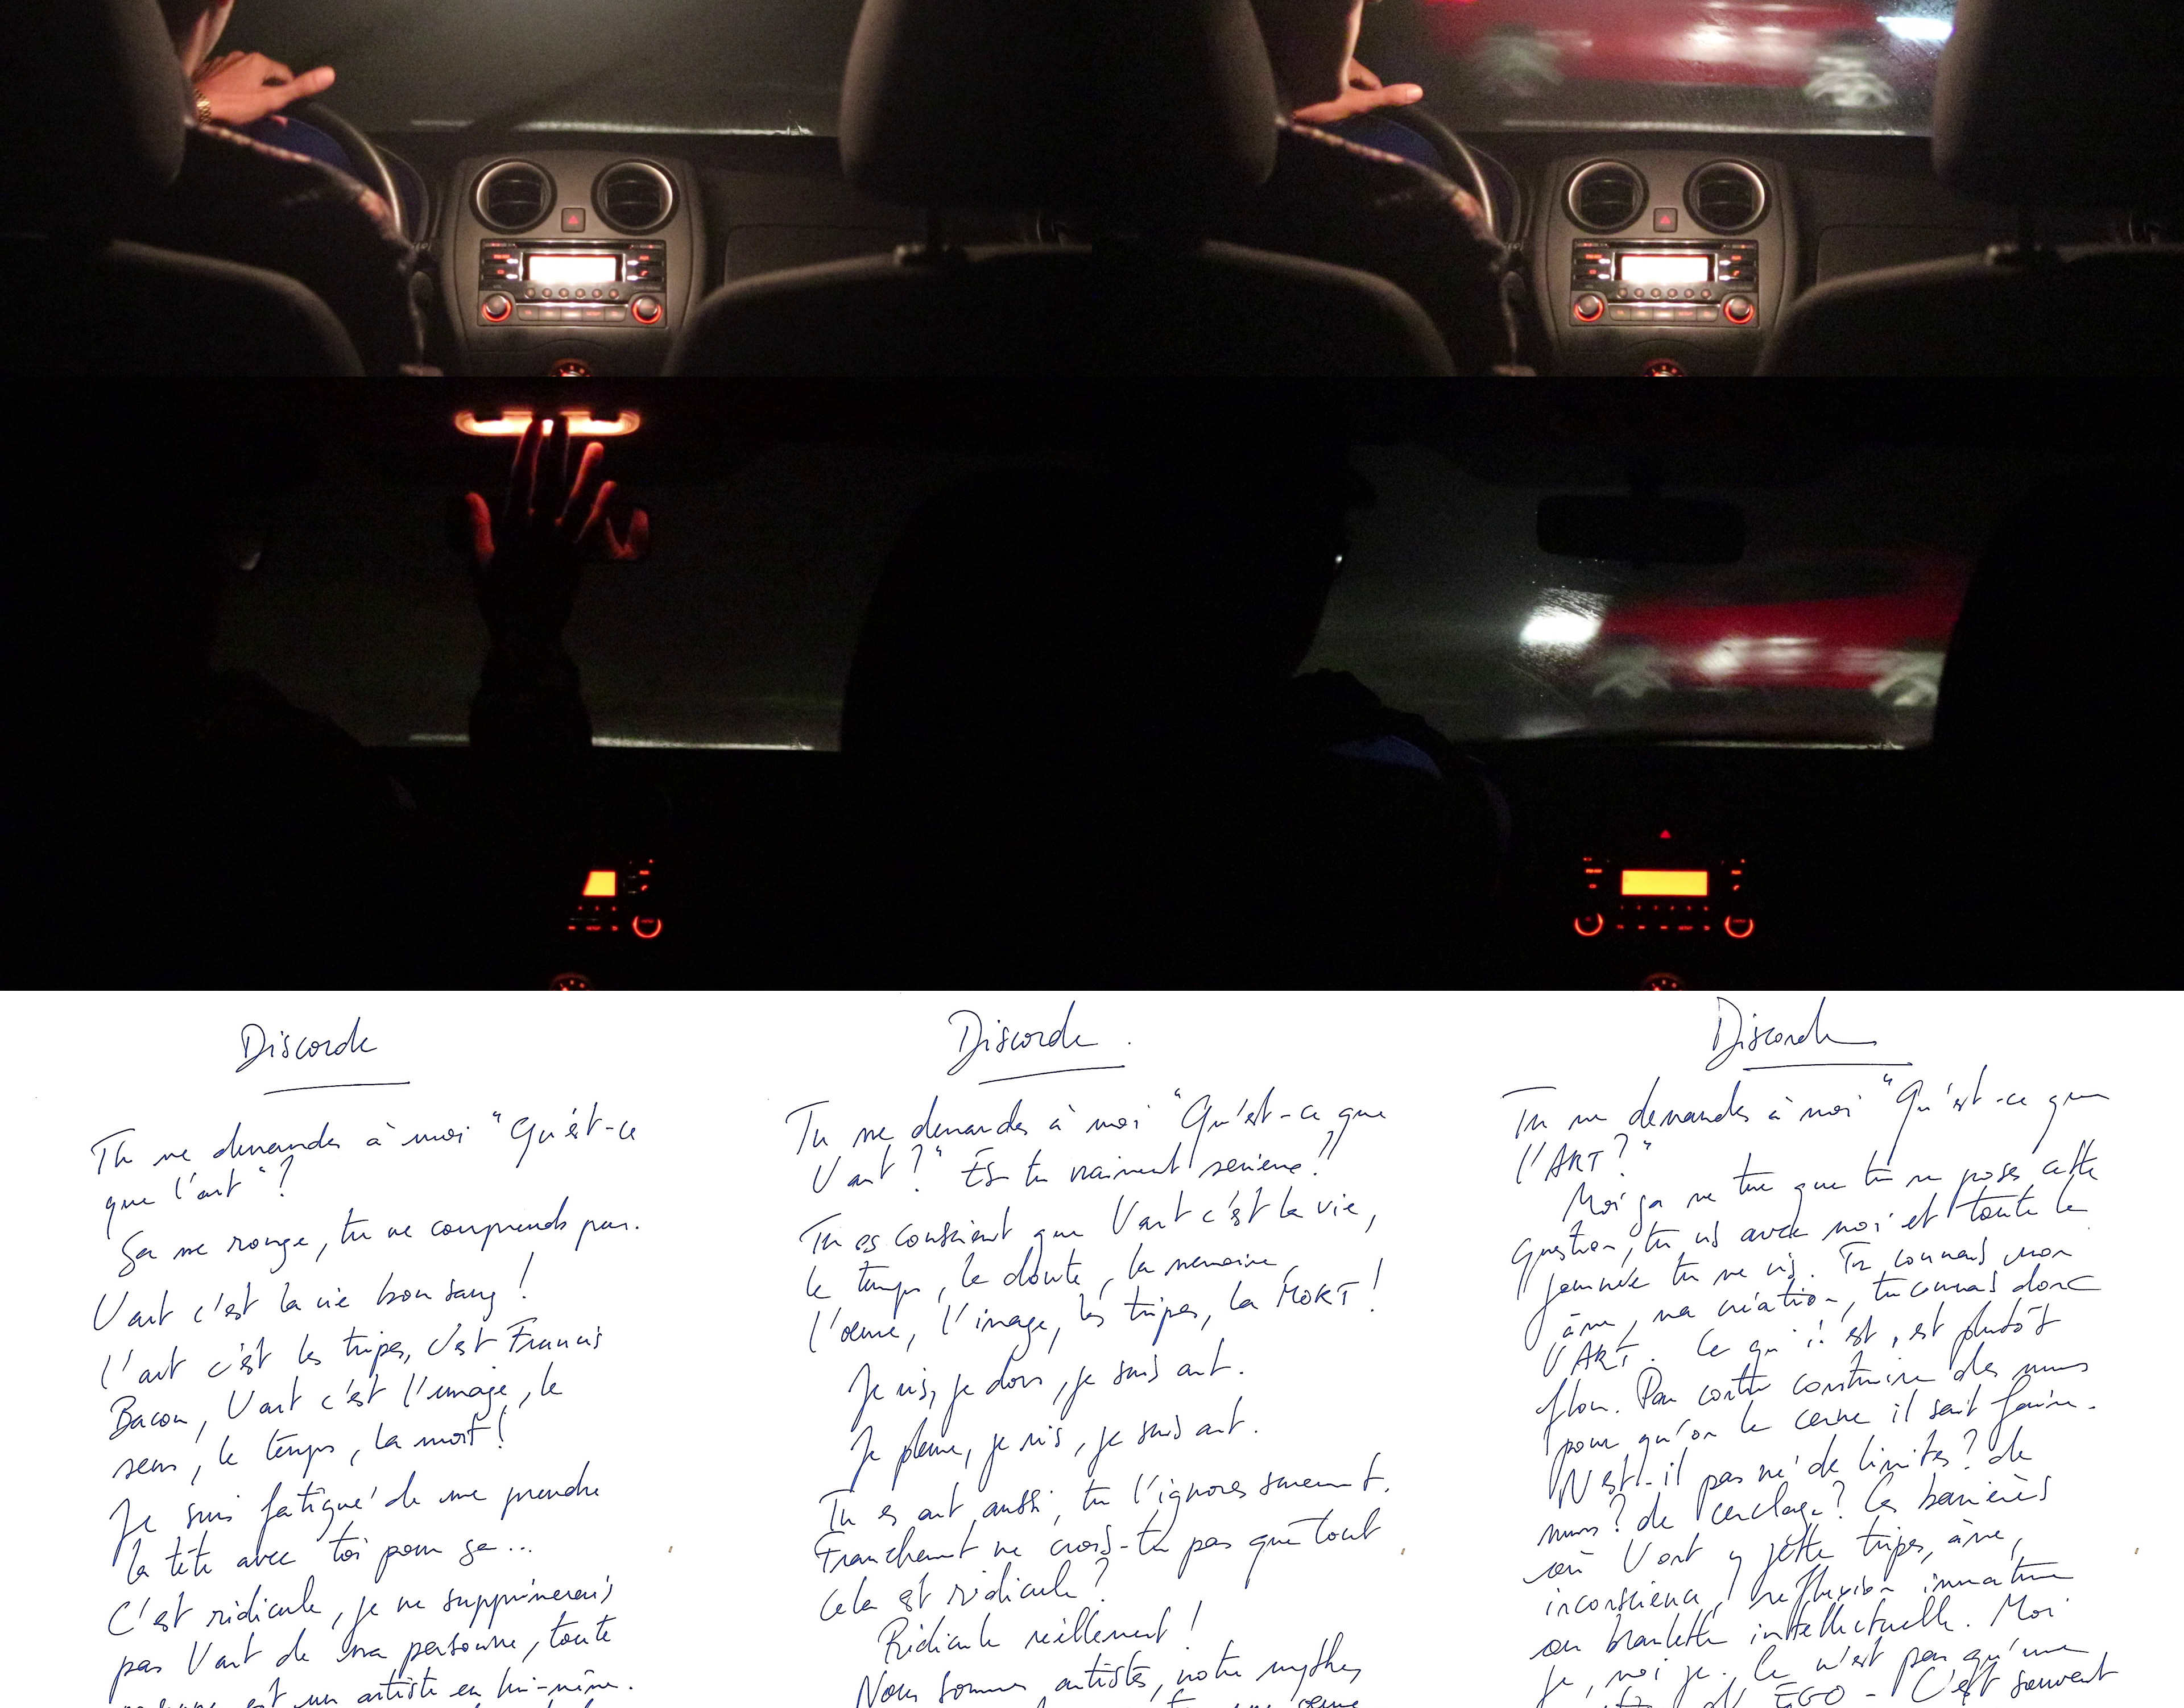 Discorde
Tu me demandes à moi "Qu'est-ce
que l'art"?
Ça me ronge, tu ne comprends pas.
L'art c'est la vie bon sang !
l'art c'est les tripes, c'est Francis
Bacon, L'art c'est l'image, le
sens, le temps, la mort !
Je suis fatigué de me prendre
la tête avec toi pour ça...
C'est ridicule, je ne supprimerais
pas l'art de ma personne, toute
est un artiste en lui-même.
Discorde.
Tu me demandes à moi "Qu'est-ce que
L'art ?" Es tu vraiment serieux !!
Tu es conscient que l'art c'est la vie,
le temps, le doute, la memoire,
l'oeuvre, l'image, les tripes, la MORT !
Je vis, je dors, je suis art.
Je pleure, je ris, je suis art.
Tu es art aussi, tu l'ignores surement.
Franchement ne crois-tu pas que tout
cela est ridicule ?
Ridicule réellement !
Nous sommes artistes, notre mythe,
Discorde
Tu me demandes à moi "Qu'est-ce que
l'ART ?"
Moi ça me tue que tu me poses cette
question, tu vis avec moi et toute la
journée tu me vis. Tu connais mon
âme, ma création, tu connais donc
l'ART. Ce qu'il est, est plutôt
flou. Par contre construire des murs
pour qu'on le cerne il sait faire.
N'est-il pas né de limites ? de
murs ? de cerclage ? Ces barrières
où l'art y jette tripes, âme,
inconscience, reflexion immature
ou branlette intellectuelle. Moi
je, moi je. Ce n'est pas qu'une
EGO - C'est souvent